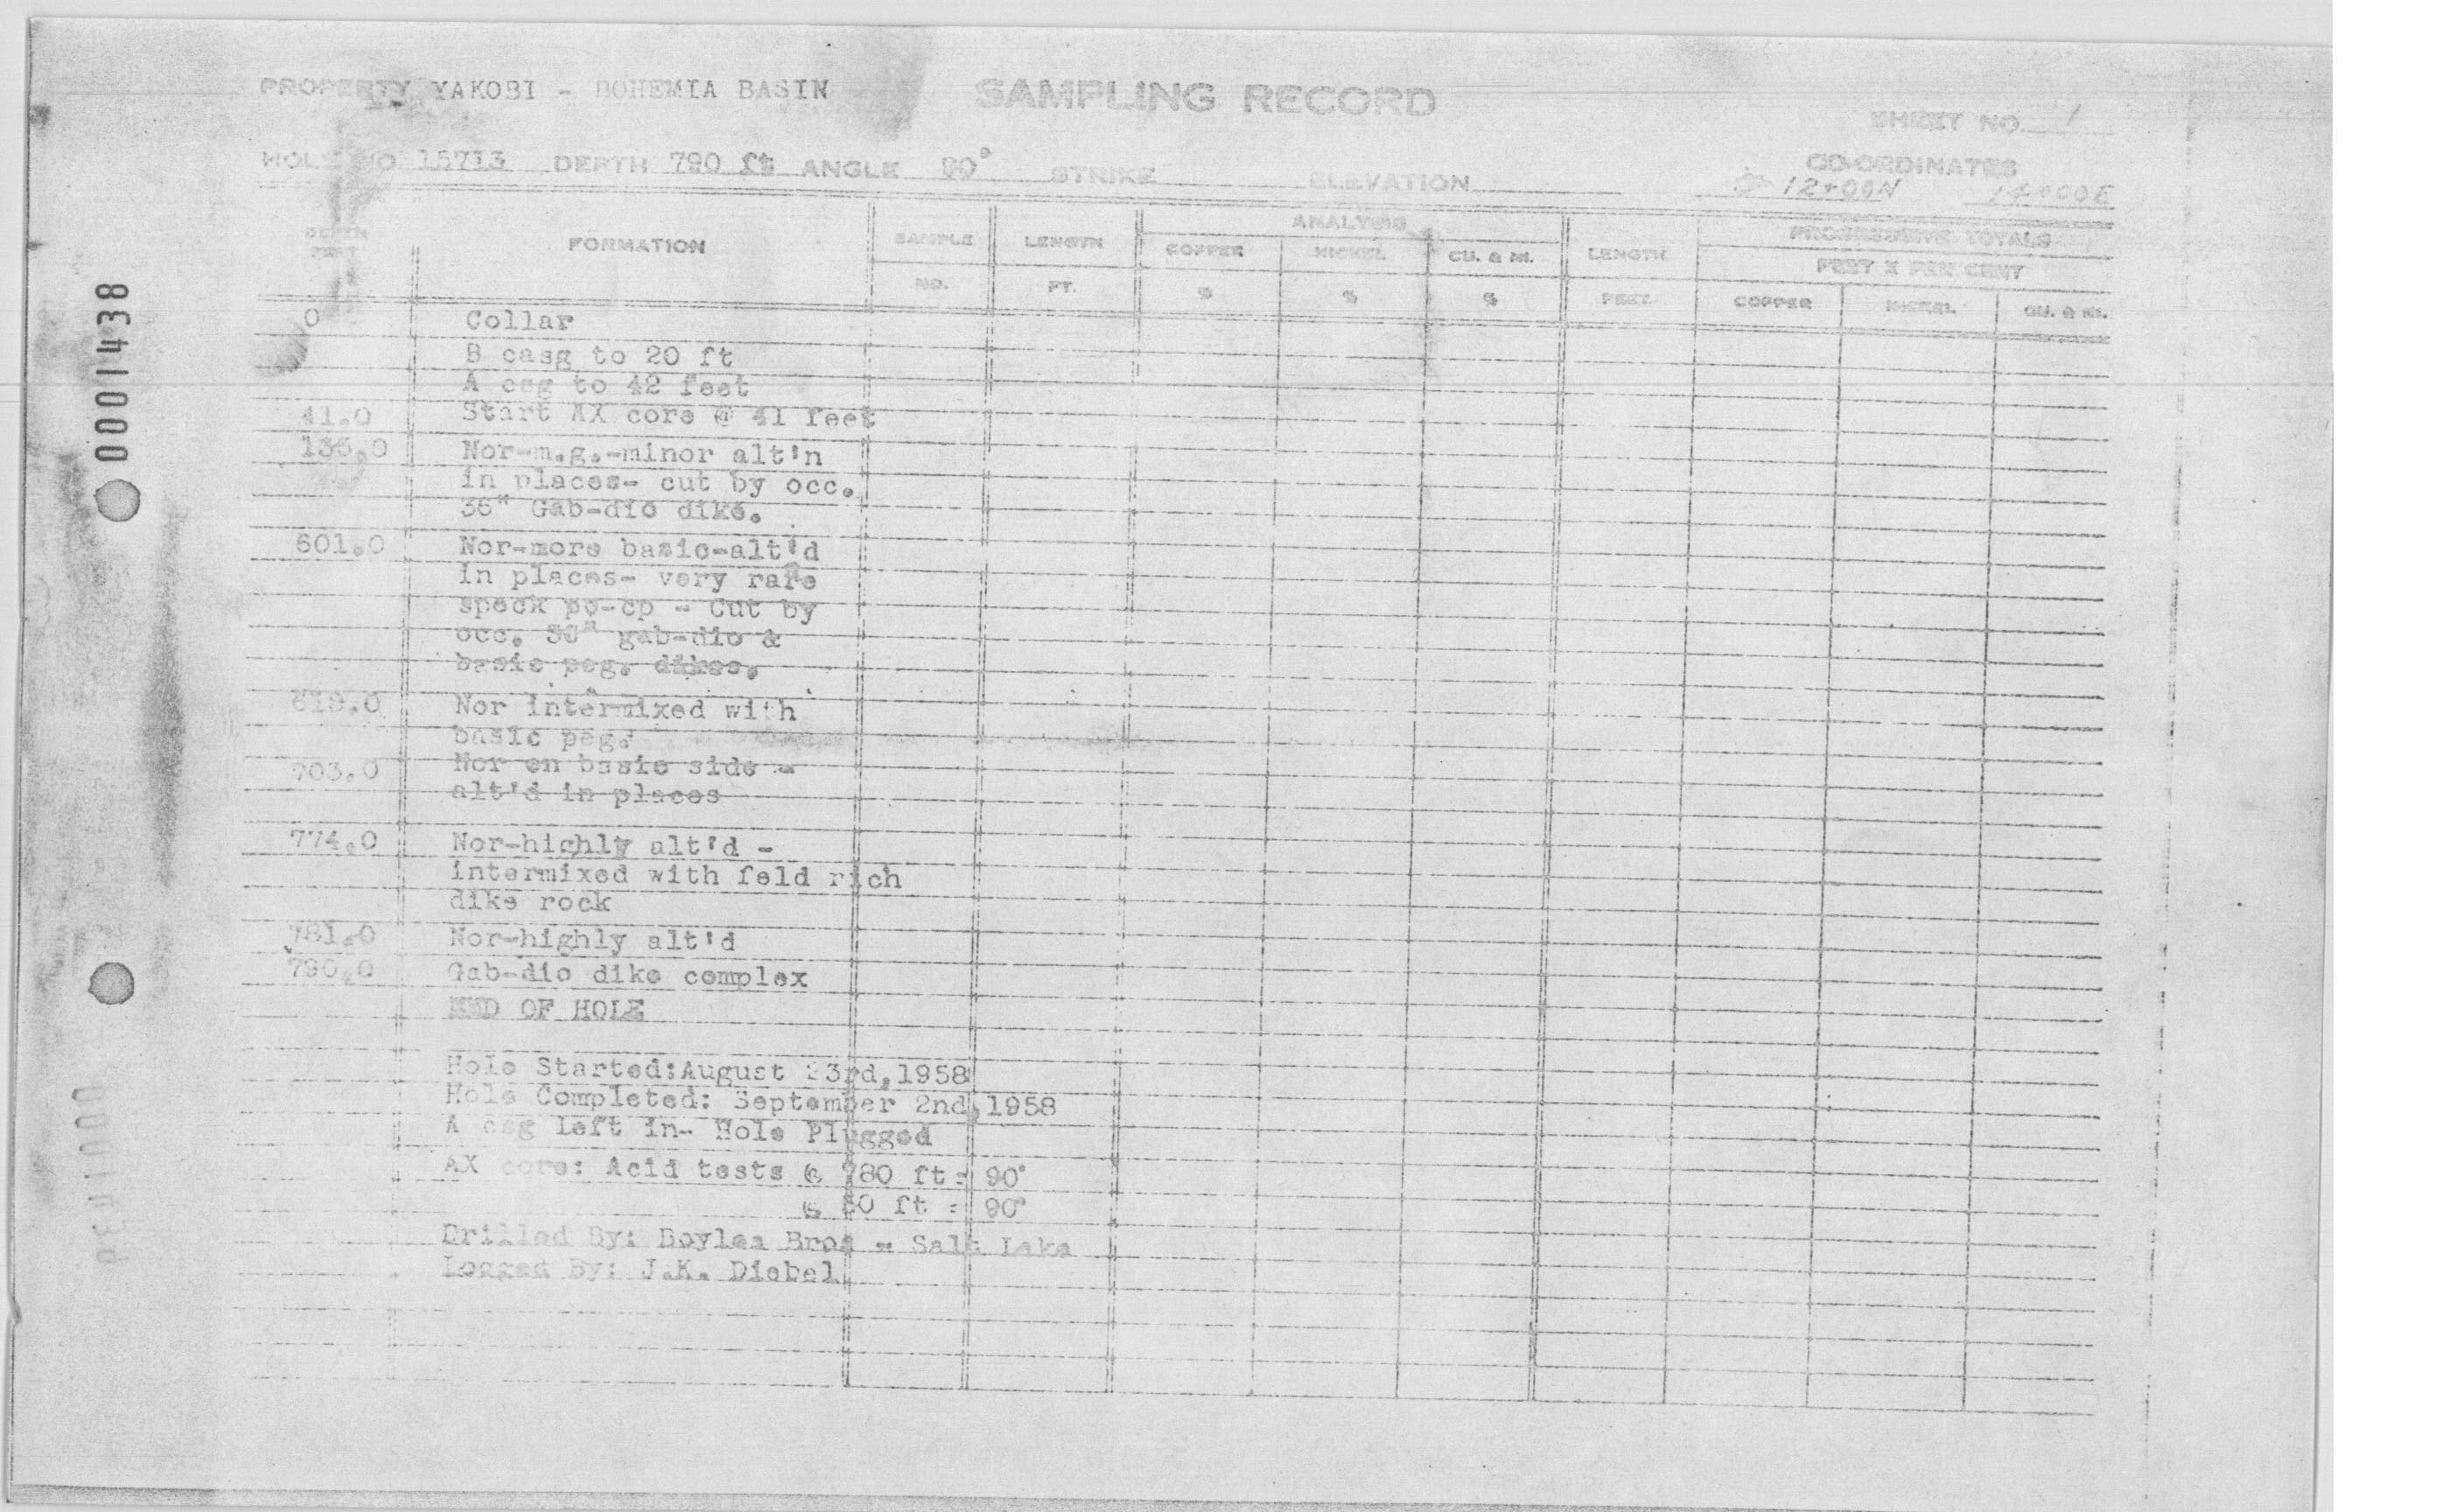 PROPERTY YAKOBI - BOHEMIA BASIN
SAMPLING RECORD
SHEET NO. 1
HOLE NO 15713 DEPTH 790 ft ANGLE 90° STRIKE ELEVATION
CO-ORDINATES
12+00N 14+00E
DEPTH FEET FORMATION SAMPLE NO. LENGTH FT. ANALYSIS COPPER % NICKEL % CU. & NI. % LENGTH FEET PROGRESSIVE TOTALS FEET X PER CENT COPPER NICKEL CU. & NI.
0 Collar
B casg to 20 ft
A csg to 42 feet
41.0 Start AX core @ 41 feet
135.0 Nor-m.g.-minor alt'n
in places- cut by occ.
36" Gab-dio dike.
601.0 Nor-more basic-alt'd
in places- very rare
speck po-cp - Cut by
occ. 30" gab-dio &
basic peg. dikes.
Nor intermixed with
basic peg.
703.0 Nor on basic side -
alt'd in places
774.0 Nor-highly alt'd -
intermixed with feld rich
dike rock
781.0 Nor-highly alt'd
790.0 Gab-dio dike complex
END OF HOLE
Hole Started:August 23rd,1958
Hole Completed: September 2nd,1958
A csg left in- Hole Plugged
AX core: Acid tests @ 780 ft = 90°
@ 50 ft = 90°
Drilled By: Boyles Bros - Salt Lake
Logged By: J.K. Diebel
0001438